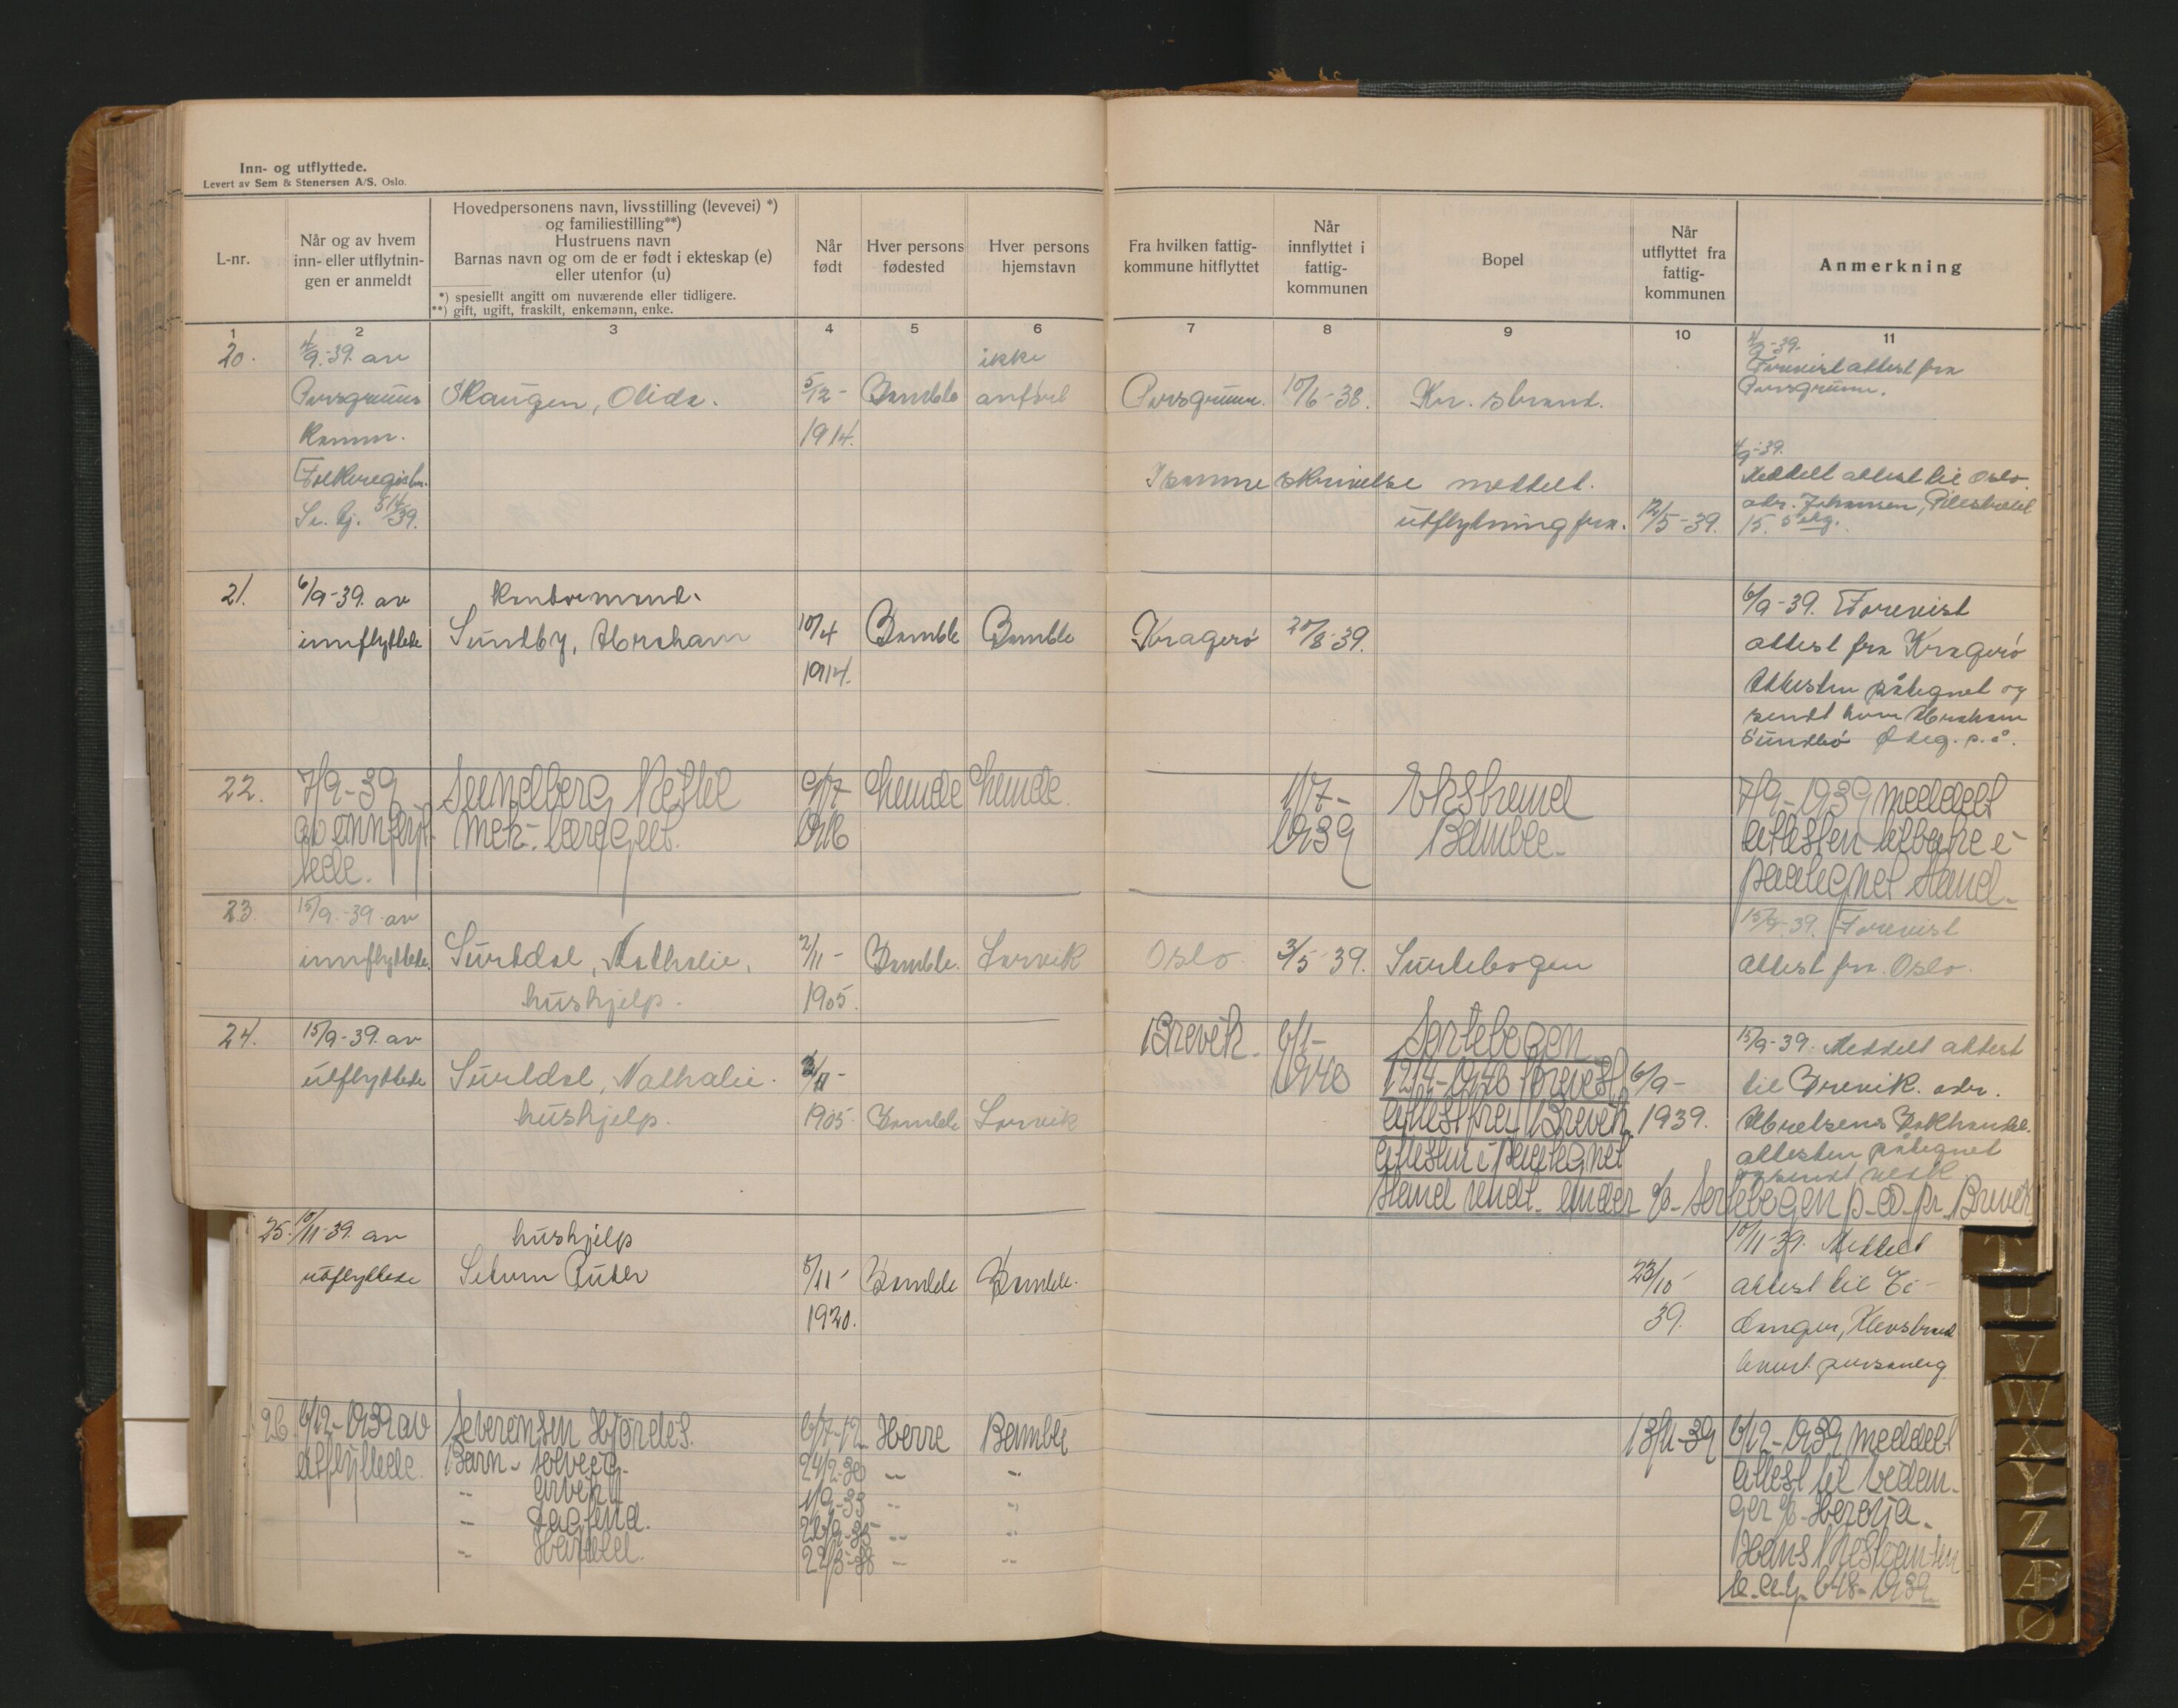 Inn- og utflyttede.
Levert av Sem & Stenersen A/S, Oslo.
L-nr.
Når og av hvem
inn- eller utflytnin-
gen er anmeldt
Hovedpersonens navn, livsstilling (levevei) *)
og familiestilling**)
Hustruens navn
Barnas navn og om de er født i ekteskap (e)
eller utenfor (u)
*) spesiellt angitt om nuværende eller tidligere.
**) gift, ugift, fraskilt, enkemann, enke.
Når
født
Hver persons
fødested
Hver persons
hjemstavn
Fra hvilken fattig-
kommune hitflyttet
Når
innflyttet i
fattig-
kommunen
Bopel
Når
utflyttet fra
fattig-
kommunen
Anmerkning
1 2 3 4 5 6 7 8 9 10 11
20.
4/9-39. av
Porsgrunns
Komm.
Folkeregister.
Skaugen, Olida.
5/12-
1914.
Bamble
ikke
anført
Porsgrunn.
10/6-38.
Kr. strand.
I samme skrivelse meddelt.
utflytning fra.
12/5-39.
4/9-39.
Forevist attest fra
Porsgrunn.
4/9-39.
Meddelt attest til Oslo.
adr. Johansen, Pilestredet
15. 5 etg.
21.
6/9-39. av
innflyttede
Kontormand.
Sundby, Abraham
10/4
1914.
Bamble
Bamble
Kragerø
20/8-39.
6/9-39. Forevist
attest fra Kragerø
Attesten påtegnet og
sendt ham Abraham
Sundbø
22.
7/9-39
av innflyt-
tede.
Sundberg Ketil
mek.
Lunde
Lunde.
1/7-
1939
Ekstrand
Bamble.
7/9-1939 meddelt
attesten tilbake i
paategnet stand.
23.
15/9-39. av
innflyttede.
Surtdal, Nathalie.
hushjelp.
2/11-
1905.
Bamble.
Larvik
Oslo.
3/5-39.
Surtebogen
15/9-39. Forevist
attest fra Oslo.
24.
15/9-39. av
utflyttede
Surtdal, Nathalie.
hushjelp.
2/11-
1905.
Bamble
Larvik
Brevik.
6/1-
1940
Sortebogen
12/4-1940 forevist
attest fra Brevik.
attesten i paategnet
stand sendt under c/o Sortebogen p.å. pr. Brevik
6/9-
1939.
15/9-39. Meddelt attest
til Brevik. adr.
Abrelsens Bokhandel.
attesten påtegnet
og sendt
25.
10/11-39. av
utflyttede
hushjelp
Setum Ruth
5/11-
1920.
Bamble
Bamble.
23/10-
39.
10/11-39. Meddelt
attest til Ei-
danger, Klevstrand
levert personlig
26
6/12-1939 av
utflyttede.
Severinsen Hjördis.
Barn - Solveig
- Arvid
- Dagfinn.
- Harald.
6/7-12
24/2-30
1/9-33
26/9-35
22/3-38
Herre
Bamble
13/11-39
6/12-1939 meddelt
attest til Eidan-
ger c/o Herøya.
Hans Kristiansen
648-1939